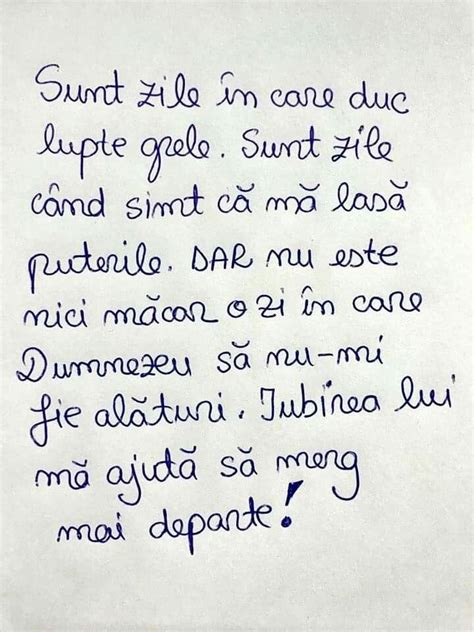 Sunt zile în care duc
lupte grele. Sunt zile
când simt că mă lasă
puterile. DAR nu este
nici măcar o zi în care
Dumnezeu să nu-mi
fie alături. Iubirea lui
mă ajută să merg
mai departe!